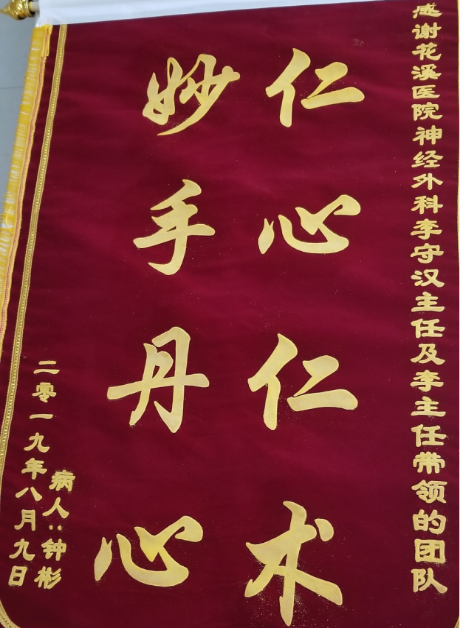 感谢花溪医院神经外科李守汉主任及李主任带领的团队
仁心仁术
妙手丹心
病人:钟彬
二零一九年八月九日